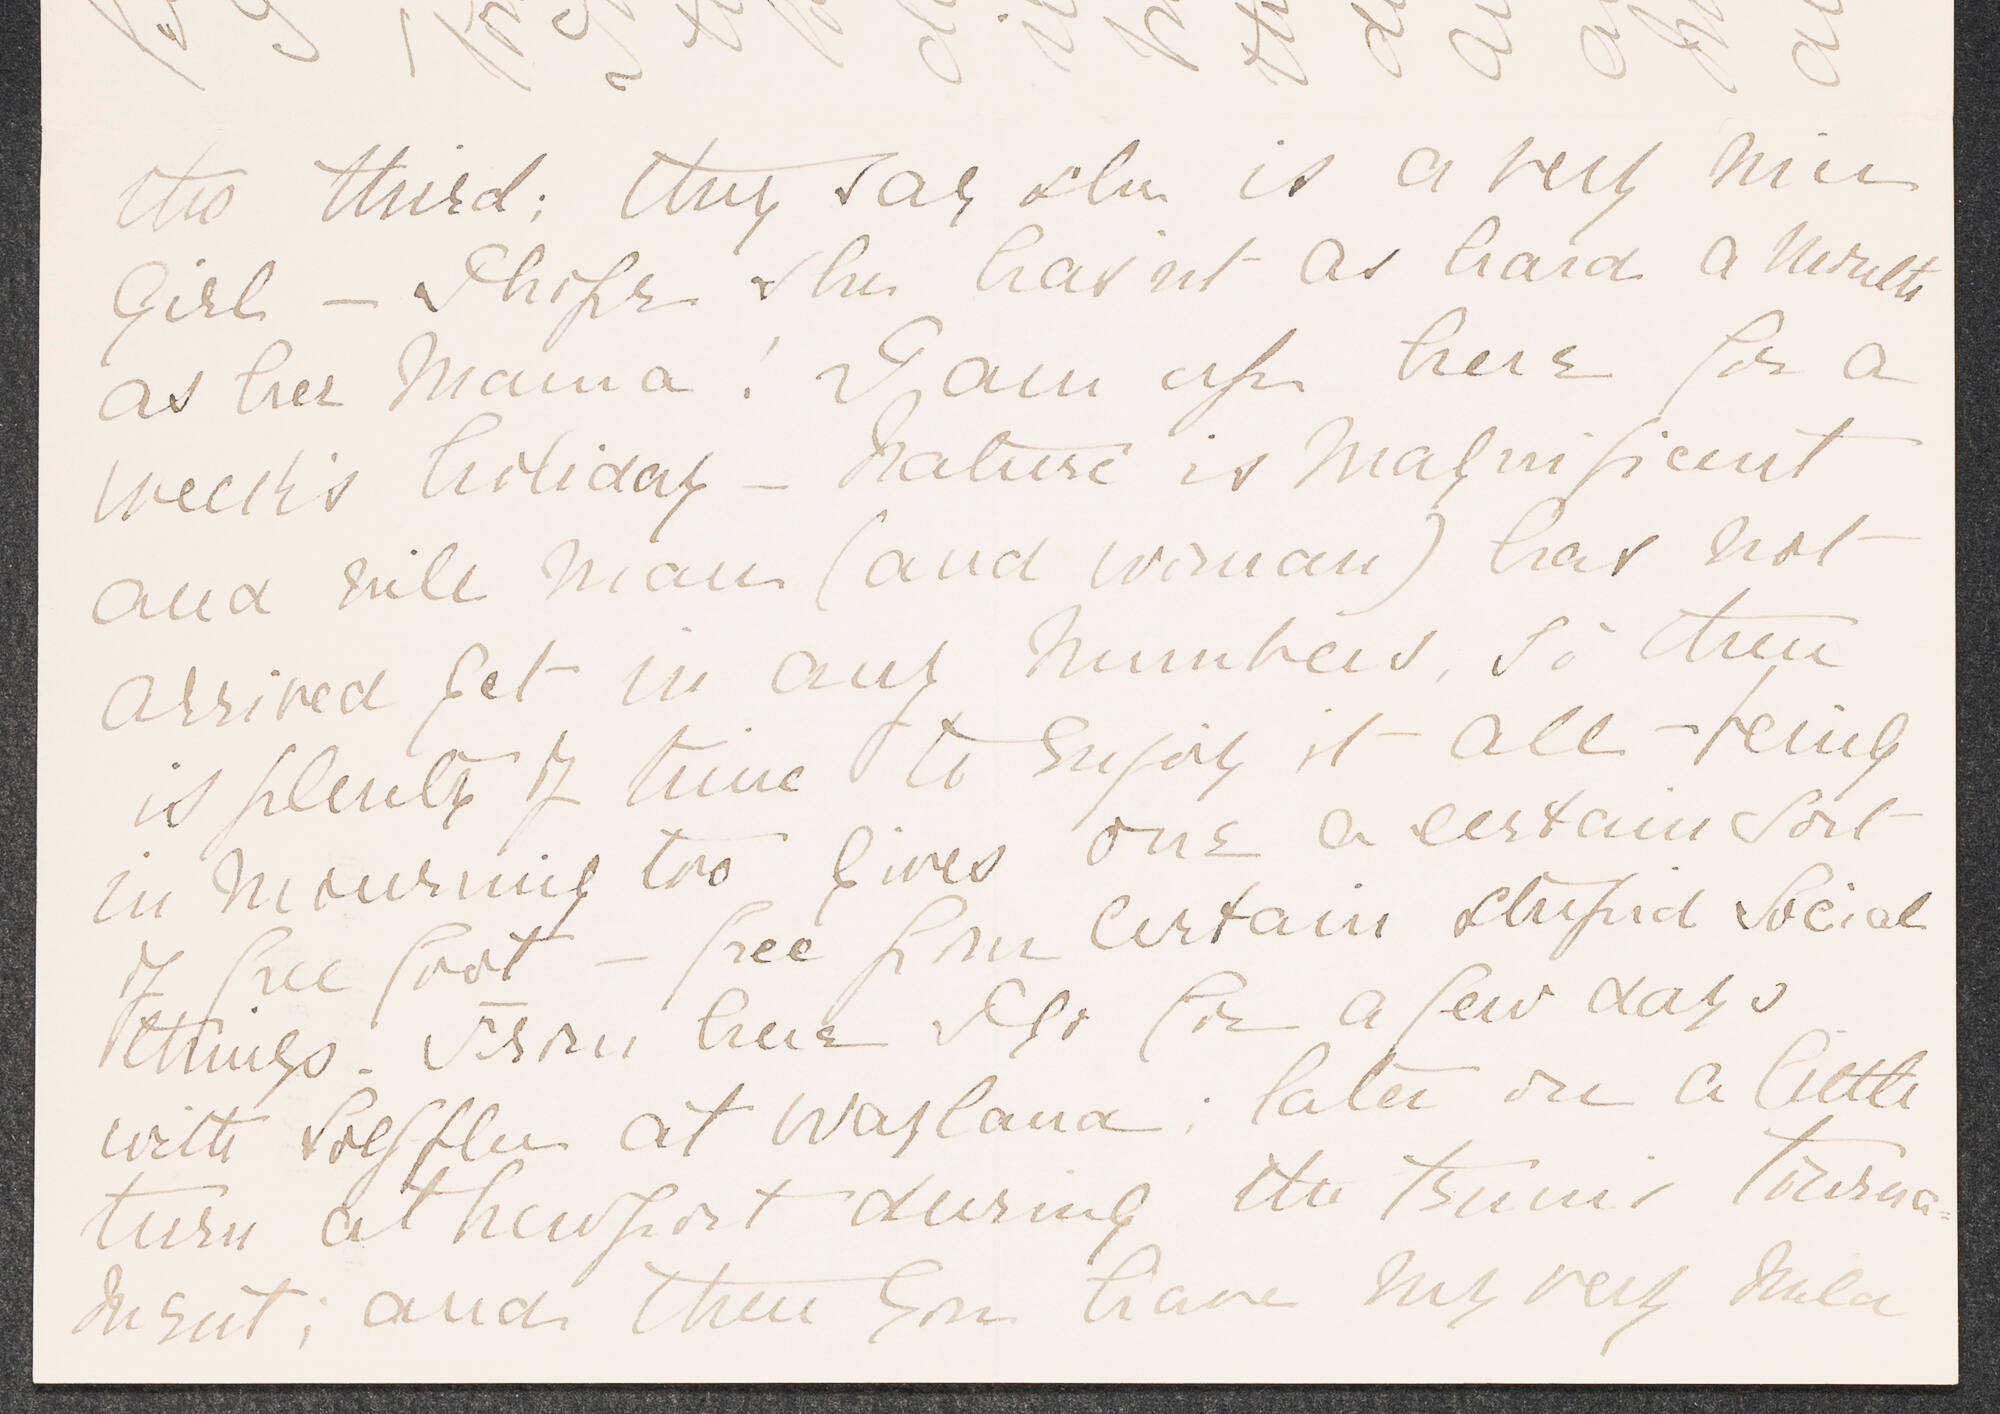 the third; they say she is a very nice
Girl — I hope she hasn't as hard a mouth
as her Mama! I am up here for a
week's holiday — Nature is magnificent
and vile man (and woman) has not
arrived yet in any numbers, so there
is plenty of time to enjoy it all — being
in mourning too gives one a certain sort
of free foot — free from certain stupid social
things. From here I go for a few days
with at Wayland; later on a little
turn at Newport during the Tennis Tourna=
ment; and then you have my very